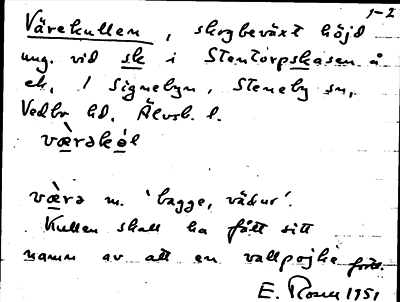 1-2
Värekullen, skogbeväxt höjd
ung. vid sk i Stentorpskasen å
ek. / Signebyn, Steneby sn,
Vedbo hd, Älvsb. l.
væ̀rəkól
væ̀rə m. 'bagge, vädur'.
Kullen skall ha fått sitt
namn av att en vallpojke forts.
E. Rosen 1951